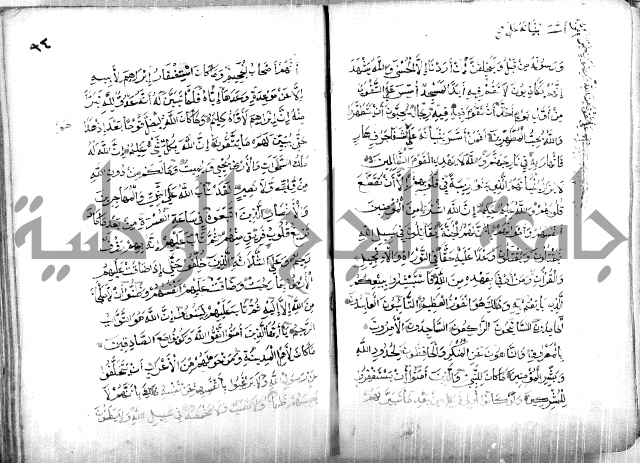 أسس بنيانه على
ورسوله من قبل وليحلفن إن أردنا إلا الحسنى والله يشهد
إنهم لكاذبون لا تقم فيه أبدا لمسجد أسس على التقوى
من أول يوم أحق أن تقوم فيه فيه رجال يحبون أن يتطهروا
والله يحب المطهرين أفمن أسس بنيانه على شفا جرف هار
فانهار به في نار جهنم والله لا يهدي القوم الظالمين
لا يزال بنيانهم الذي بنوا ريبة في قلوبهم إلا أن تقطع
قلوبهم والله عليم حكيم إن الله اشترى من المؤمنين
أنفسهم وأموالهم بأن لهم الجنة يقاتلون في سبيل الله
فيقتلون ويقتلون وعدا عليه حقا في التوراة والإنجيل
والقرآن ومن أوفى بعهده من الله فاستبشروا ببيعكم
الذي بايعتم به وذلك هو الفوز العظيم التائبون العابدون
الحامدون السائحون الراكعون الساجدون الآمرون
بالمعروف والناهون عن المنكر والحافظون لحدود الله
وبشر المؤمنين ما كان للنبي والذين آمنوا أن يستغفروا
للمشركين ولو كانوا أولي قربى من بعد ما تبين لهم
٩٤
أنهم أصحاب الجحيم وما كان استغفار إبراهيم لأبيه
إلا عن موعدة وعدها إياه فلما تبين له أنه عدو لله تبرأ
منه إن إبراهيم لأواه حليم وما كان الله ليضل قوما بعد إذ هداهم
حتى يبين لهم ما يتقون إن الله بكل شيء عليم إن الله له
ملك السموات والأرض يحيي ويميت وما لكم من دون الله
من ولي ولا نصير لقد تاب الله على النبي والمهاجرين
والأنصار الذين اتبعوه في ساعة العسرة من بعد ما كاد
تزيغ قلوب فريق منهم ثم تاب عليهم إنه بهم رؤوف
رحيم وعلى الثلاثة الذين خلفوا حتى إذا ضاقت عليهم
الأرض بما رحبت وضاقت عليهم أنفسهم وظنوا أن لا ملجأ
من الله إلا إليه ثم تاب عليهم ليتوبوا إن الله هو التواب
الرحيم يا أيها الذين آمنوا اتقوا الله وكونوا مع الصادقين
ما كان لأهل المدينة ومن حولهم من الأعراب أن يتخلفوا
عن رسول الله ولا يرغبوا بأنفسهم عن نفسه ذلك بأنهم لا
يصيبهم ظمأ ولا نصب ولا مخمصة في سبيل الله ولا يطئون
جامعة النجاح الوطنية